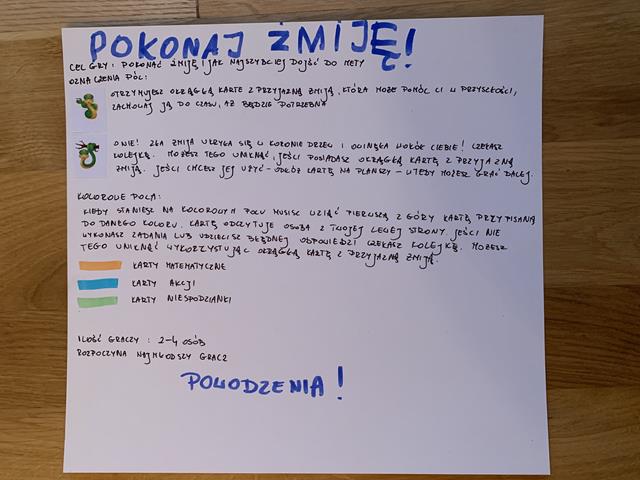 POKONAJ ŻMIJĘ!
CEL GRY: POKONAĆ ŻMIJĘ I JAK NAJSZYBCIEJ DOJŚĆ DO METY
OZNACZENIA PÓL:
OTRZYMUJESZ OKRĄGŁĄ KARTĘ Z PRZYJAZNĄ ŻMIJĄ, KTÓRA MOŻE POMÓC CI W PRZYSZŁOŚCI,
ZACHOWAJ JĄ DO CZASU, AŻ BĘDZIE POTRZEBNA
O NIE! ZŁA ŻMIJA UKRYŁA SIĘ W KORONIE DRZEW I OWINĘŁA WOKÓŁ CIEBIE! CZEKASZ
KOLEJKĘ. MOŻESZ TEGO UNIKNĄĆ, JEŚLI POSIADASZ OKRĄGŁĄ KARTĘ Z PRZYJAZNĄ
ŻMIJĄ. JEŚLI CHCESZ JEJ UŻYĆ - ODŁÓŻ KARTĘ NA PLANSZY - WTEDY MOŻESZ GRAĆ DALEJ.
KOLOROWE POLA:
KIEDY STANIESZ NA KOLOROWYM POLU MUSISZ WZIĄĆ PIERWSZĄ Z GÓRY KARTĘ PRZYPISANĄ
DO DANEGO KOLORU. KARTĘ ODCZYTUJE OSOBA Z TWOJEJ LEWEJ STRONY. JEŚLI NIE
WYKONASZ ZADANIA LUB UDZIELISZ BŁĘDNEJ ODPOWIEDZI CZEKASZ KOLEJKĘ. MOŻESZ
TEGO UNIKNĄĆ WYKORZYSTUJĄC OKRĄGŁĄ KARTĘ Z PRZYJAZNĄ ŻMIJĄ.
KARTY MATEMATYCZNE
KARTY AKCJI
KARTY NIESPODZIANKI
ILOŚĆ GRACZY: 2-4 OSÓB
ROZPOCZYNA NAJMŁODSZY GRACZ
POWODZENIA!